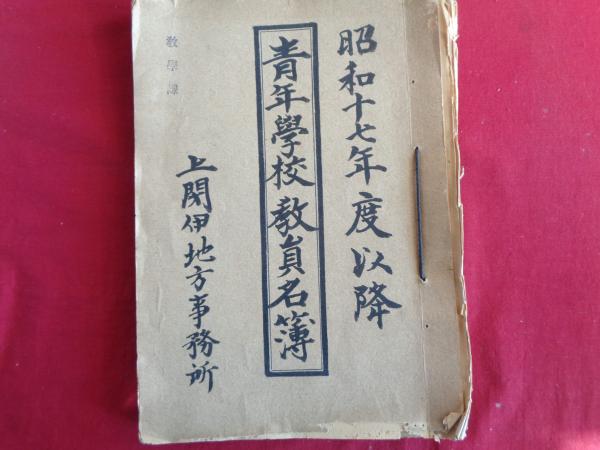 昭和十七年度以降
青年學校教員名簿
上閉伊地方事務所
教學課